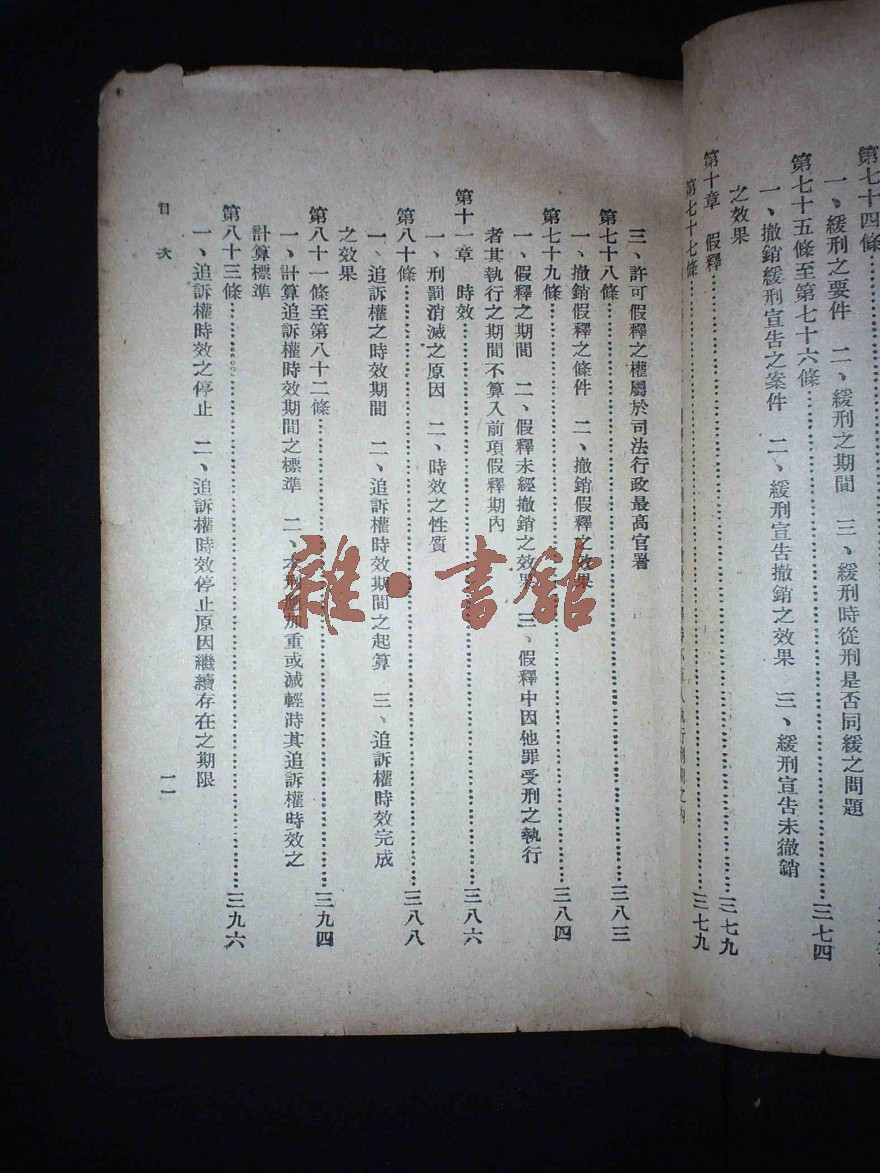 第七十四條
一、緩刑之要件　二、緩刑之期間　三、緩刑時從刑是否同緩之問題
第七十五條至第七十六條……三七四
一、撤銷緩刑宣告之案件　二、緩刑宣告撤銷之效果　三、緩刑宣告未撤銷
之效果
第十章　假釋……三七九
第七十七條……三七九
三、許可假釋之權屬於司法行政最高官署
第七十八條……三八三
一、撤銷假釋之條件　二、撤銷假釋之效果
第七十九條……三八四
一、假釋之期間　二、假釋未經撤銷之效果　三、假釋中因他罪受刑之執行
者其執行之期間不算入前項假釋期內
第十一章　時效……三八六
一、刑罰消滅之原因　二、時效之性質
第八十條……三八八
一、追訴權之時效期間　二、追訴權時效期間之起算　三、追訴權時效完成
之效果
第八十一條至第八十二條……三九四
一、計算追訴權時效期間之標準　二、本刑應加重或減輕時其追訴權時效之
計算標準
第八十三條……三九六
一、追訴權時效之停止　二、追訴權時效停止原因繼續存在之期限
目次
一一
雜·書館